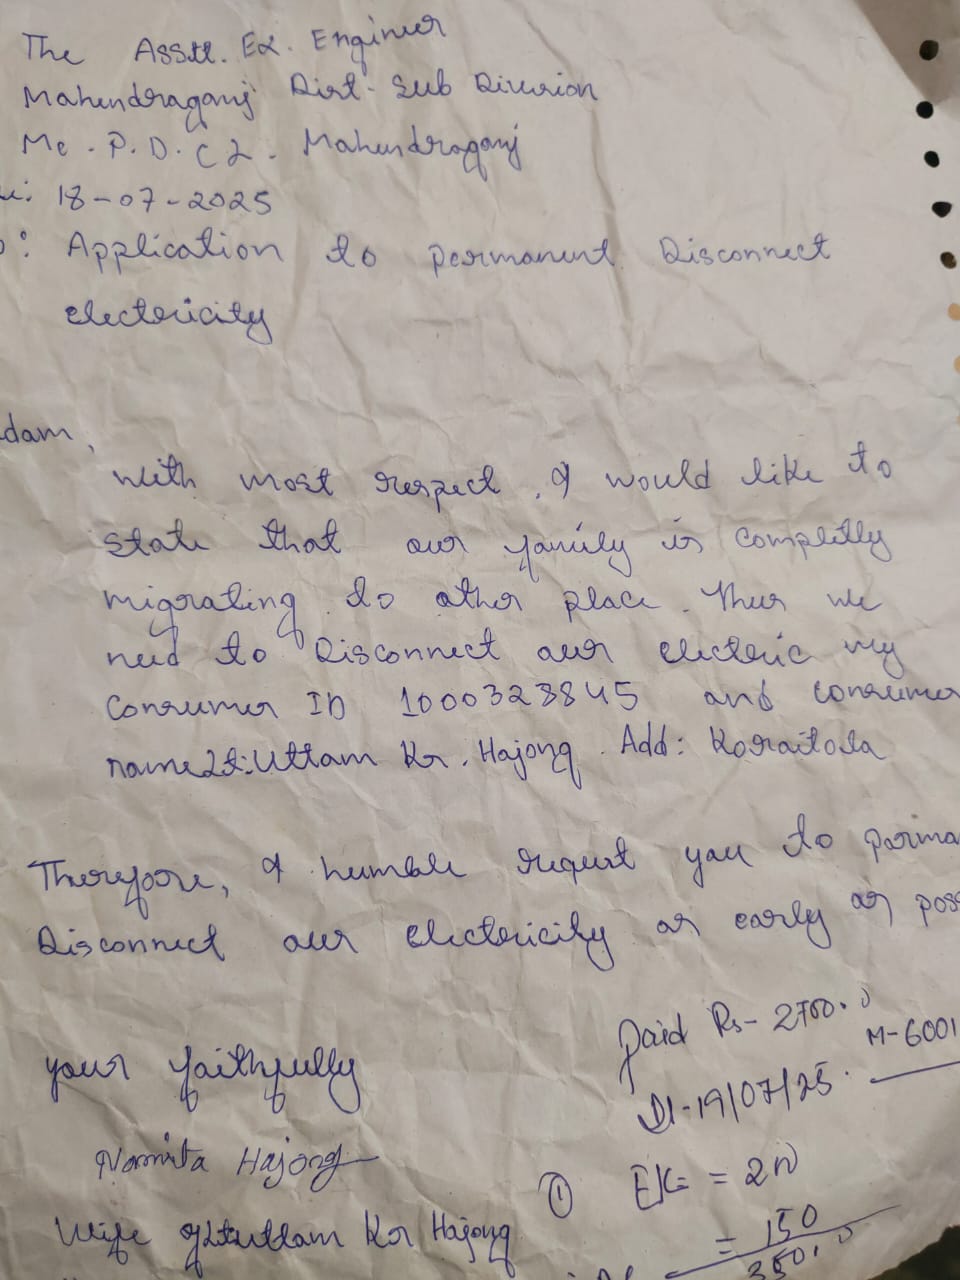 The Asstt. Ex. Engineer
Mahendraganj Dist. Sub Division
Me. P. D. C L. Mahendraganj
18-07-2025
: Application to permanent Disconnect
electericity
dam,
With most respect, I would like to
state that our family is completly
migrating to other place. Thus we
need to Disconnect our electeric my
Consumer ID 1000323845 and consumer
name Lt: Uttam Kr. Hajong. Add: Koraitola
Therefore, I humble request you to parma
Disconnect our electericity as early as poss
your faithfully
Namita Hajong
Wife of Lt uttam Kr Hajong
Paid Rs- 2700.0
M-6001
Dt-19/07/25.
① = 2
= 150
350.0